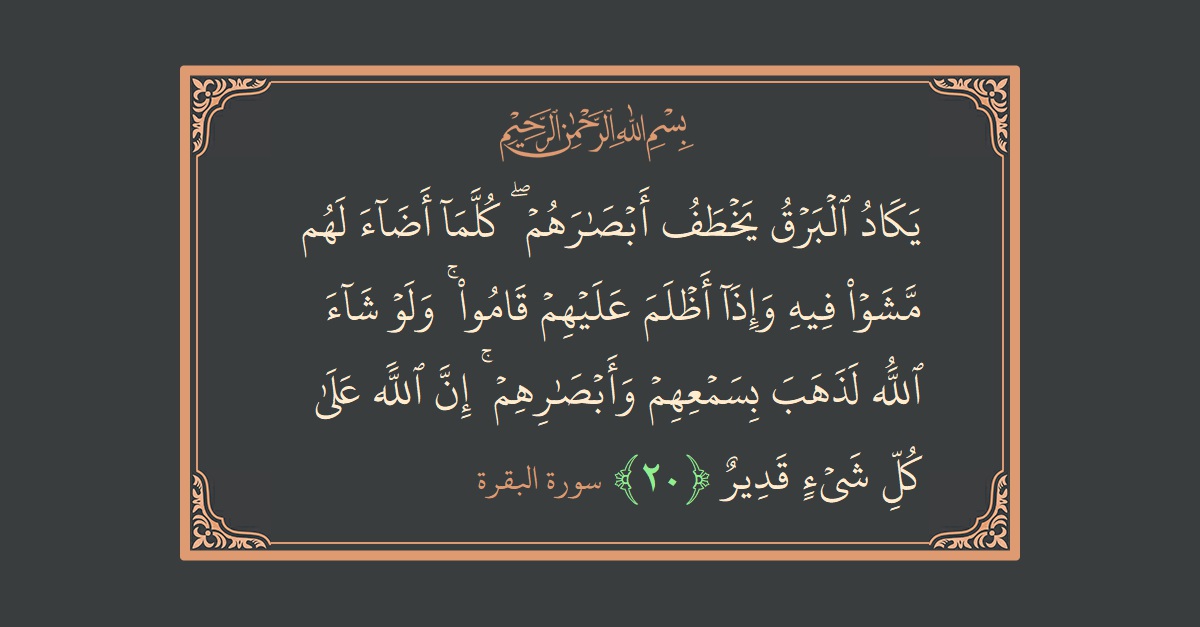 بِسْمِ اللَّهِ الرَّحْمَٰنِ الرَّحِيمِ
يَكَادُ ٱلْبَرْقُ يَخْطَفُ أَبْصَـٰرَهُمْ ۖ كُلَّمَآ أَضَآءَ لَهُم
مَّشَوْا۟ فِيهِ وَإِذَآ أَظْلَمَ عَلَيْهِمْ قَامُوا۟ ۚ وَلَوْ شَآءَ
ٱللَّهُ لَذَهَبَ بِسَمْعِهِمْ وَأَبْصَـٰرِهِمْ ۚ إِنَّ ٱللَّهَ عَلَىٰ
كُلِّ شَىْءٍ قَدِيرٌ ﴿٢٠﴾ سورة البقرة